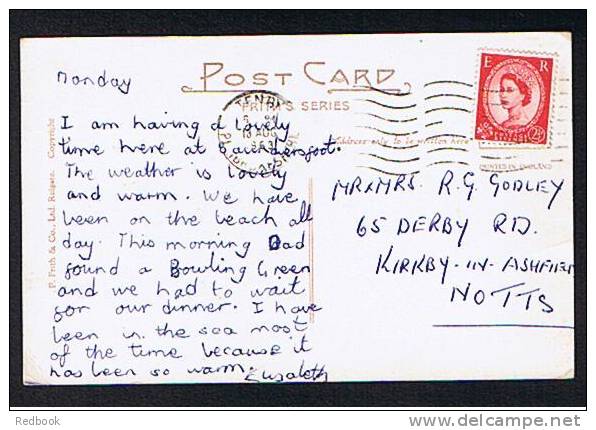 Monday
POST CARD
FRITH'S SERIES
I am having a lovely
time here at Saundersfoot.
The weather is lovely
and warm. We have
been on the beach all
day. This morning Dad
found a Bowling Green
and we had to wait
for our dinner. I have
been in the sea most
of the time because it
has been so warm. Elisabeth
F. Frith & Co., Ltd. Reigate. Copyright
Address only to be written here
E R
2½
PRINTED IN ENGLAND
TENBY
AUG
MR & MRS. R.G. GODLEY
65 DERBY RD.
KIRKBY-IN-ASHFIELD
NOTTS
Redbook
delcampe.net